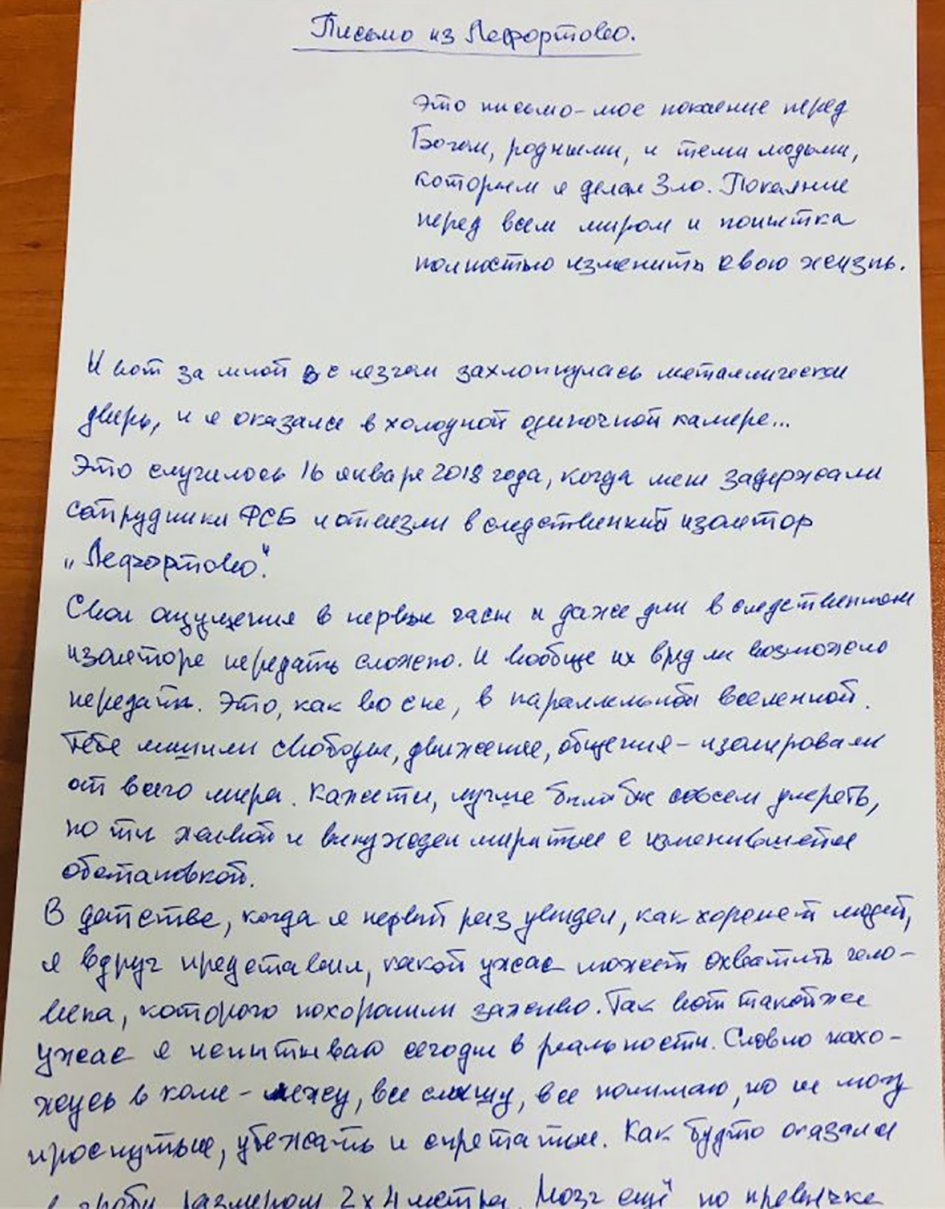 Письмо из Лефортово.
Это письмо - мое покаение перед
Богом, родными, и теми людьми,
которым я делал Зло. Покаяние
перед всем миром и попытка
полностью изменить свою жизнь.
И вот за мной с лезгом захлопнулась металлическая
дверь, и я оказался в холодной одиночной камере...
Это случилось 16 января 2018 года, когда меня задержали
сотрудники ФСБ и отвезли в следственный изолятор
„Лефортово".
Свои ощущения в первые часы и даже дни в следственном
изоляторе передать сложно. И вообще их вряд ли возможно
передать. Это, как во сне, в параллельной вселенной.
Тебя лишили свободы, движения, общения - изолировали
от всего мира. Кажется, лучше было бы совсем умереть,
но ты живой и вынужден мириться с изменившейся
обстановкой.
В детстве, когда я первый раз увидел, как хоронят людей,
я вдруг представил, какой ужас может охватить чело-
века, которого похоронили заживо. Так вот такой же
ужас я испытываю сегодня в реальности. Словно нахо-
жусь в коме - лежу, все слышу, все понимаю, но не могу
проснуться, убежать и спрятаться. Как будто оказался
в гробу размером 2х4 метра. Мозг ещё по привычке